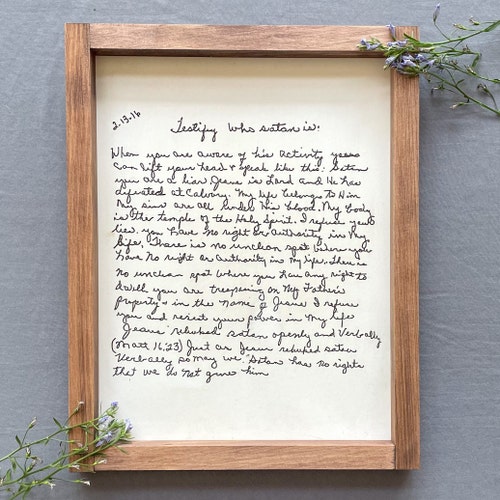 2.13.16
Testify who satan is:
When you are aware of his activity you
can lift your head & speak like this: Satan
you are a liar Jesus is Lord and He has
defeated at Calvary. My life belongs to Him
My sins are all under His blood. My body
is the temple of the Holy Spirit. I refuse your
lies. you have no right or authority in my
life. There is no unclean spot where you
have no right or authority in my life. There is
no unclean spot where you have any right to
dwell you are trespassing on My Father's
property & in the name of Jesus I refuse
you and resist your power in my life
Jesus rebuked satan openly and verbally
(Matt 16:23) Just as Jesus rebuked satan
verbally so may we. Satan has no rights
that we do not give him